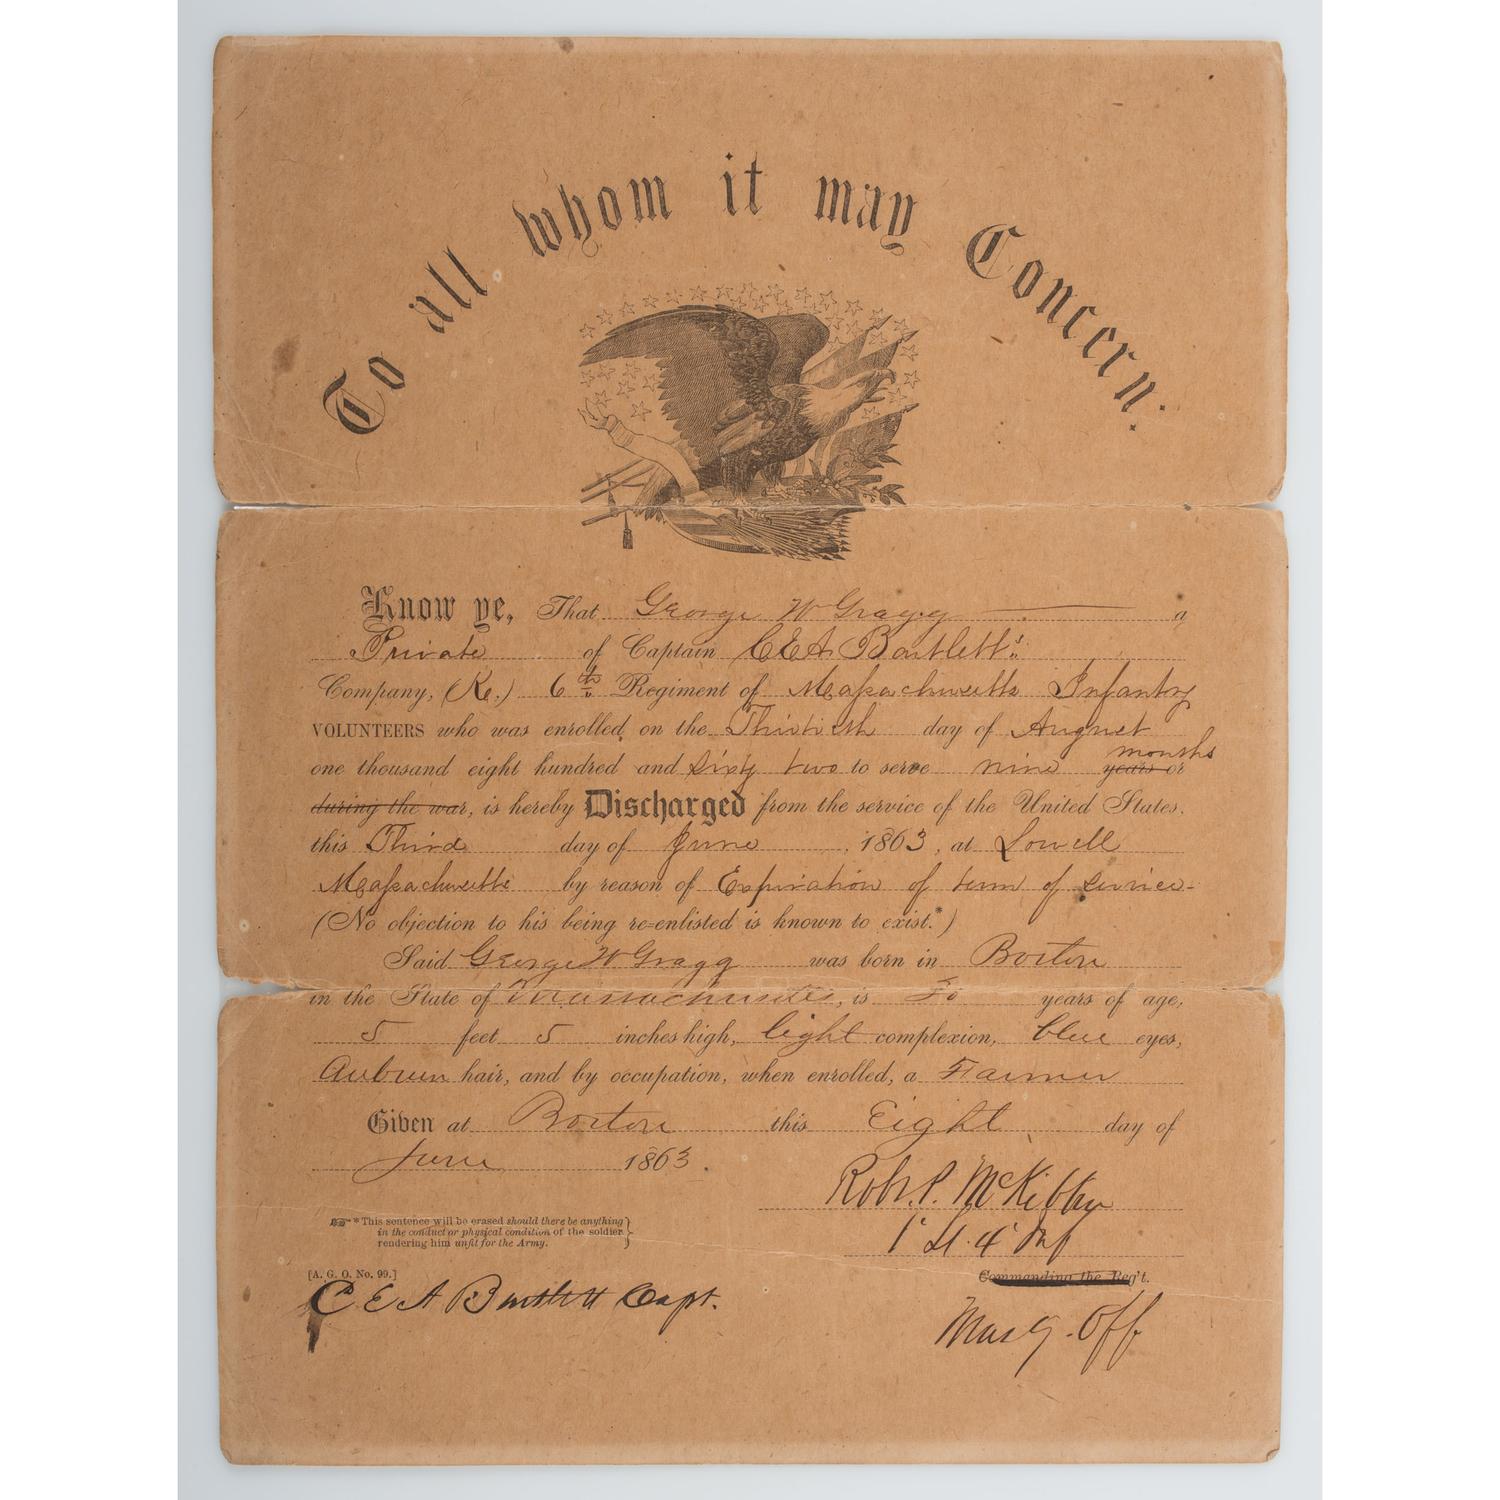 To all whom it may Concern:
Know ye, That George W Gragg a
Private of Captain C E A Bartlett's
Company, (K.) 6th Regiment of Massachusetts Infantry
VOLUNTEERS who was enrolled on the Thirtieth day of August
one thousand eight hundred and sixty two to serve nine years or months
during the war, is hereby Discharged from the service of the United States,
this Third day of June, 1863, at Lowell
Massachusetts by reason of Expiration of term of service-
(No objection to his being re-enlisted is known to exist.*)
Said George W Gragg was born in Boston
in the State of Massachusetts, is years of age,
5 feet 5 inches high, light complexion, blue eyes,
Auburn hair, and by occupation, when enrolled, a Farmer
Given at Boston this Eight day of
June 1863.
Robt. P. McKibbin
1st Lt. 4th Inf
* This sentence will be erased should there be anything
in the conduct or physical condition of the soldier
rendering him unfit for the Army.
[A. G. O. No. 99.]
Commanding the Reg't.
C E A Bartlett Capt.
Mus g. Off.